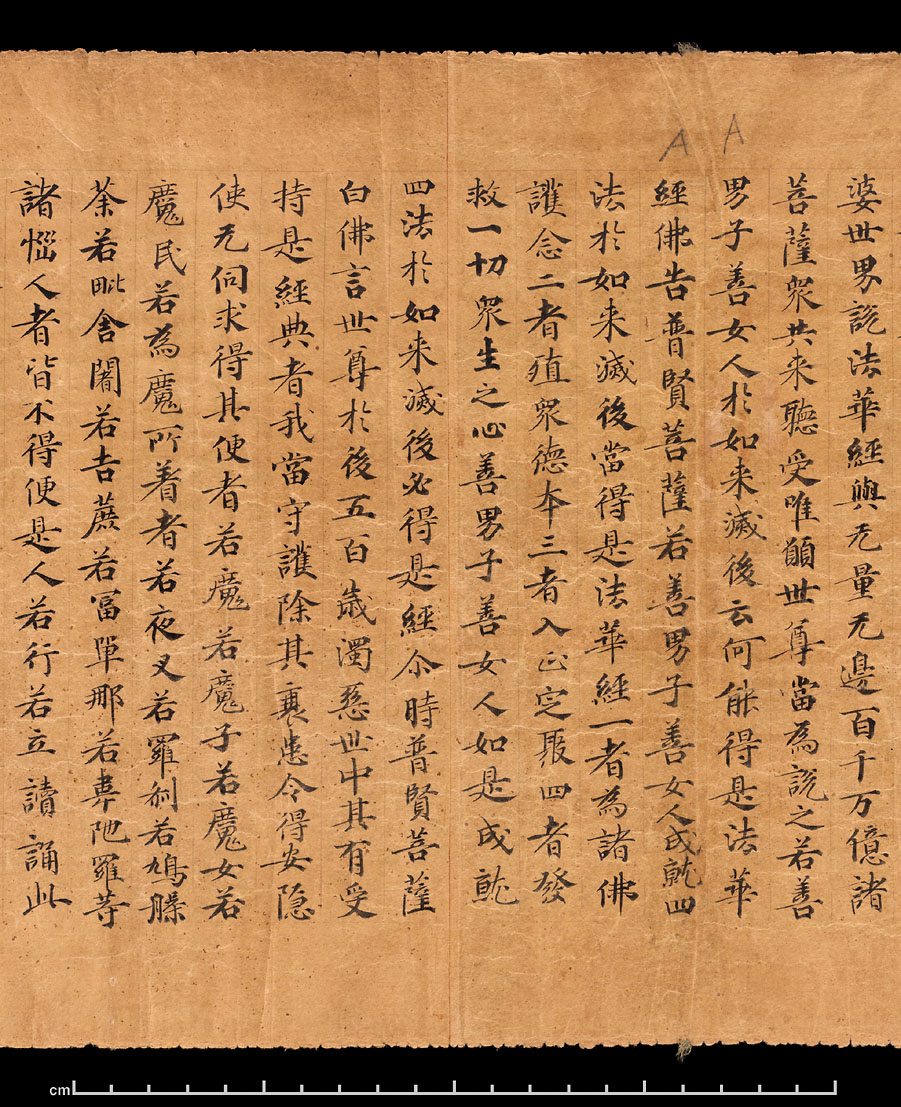 A A
婆世男說法華經與无量无邊百千万億諸
菩薩衆共来聽受唯願世尊當為說之若善
男子善女人於如来滅後云何能得是法華
經佛告普賢菩薩若善男子善女人成就四
法於如来滅後當得是法華經一者為諸佛
護念二者殖衆德本三者入正定聚四者發
救一切衆生之心善男子善女人如是成就
四法於如来滅後必得是經尒時普賢菩薩
白佛言世尊於後五百歲濁惡世中其有受
持是經典者我當守護除其衰患令得安隐
使无伺求得其便者若魔若魔子若魔女若
魔民若為魔所著者若夜叉若羅刹若鳩槃
荼若毗舍闍若吉蔗若富單那若韋陁羅等
諸惱人者皆不得便是人若行若立讀誦此
cm